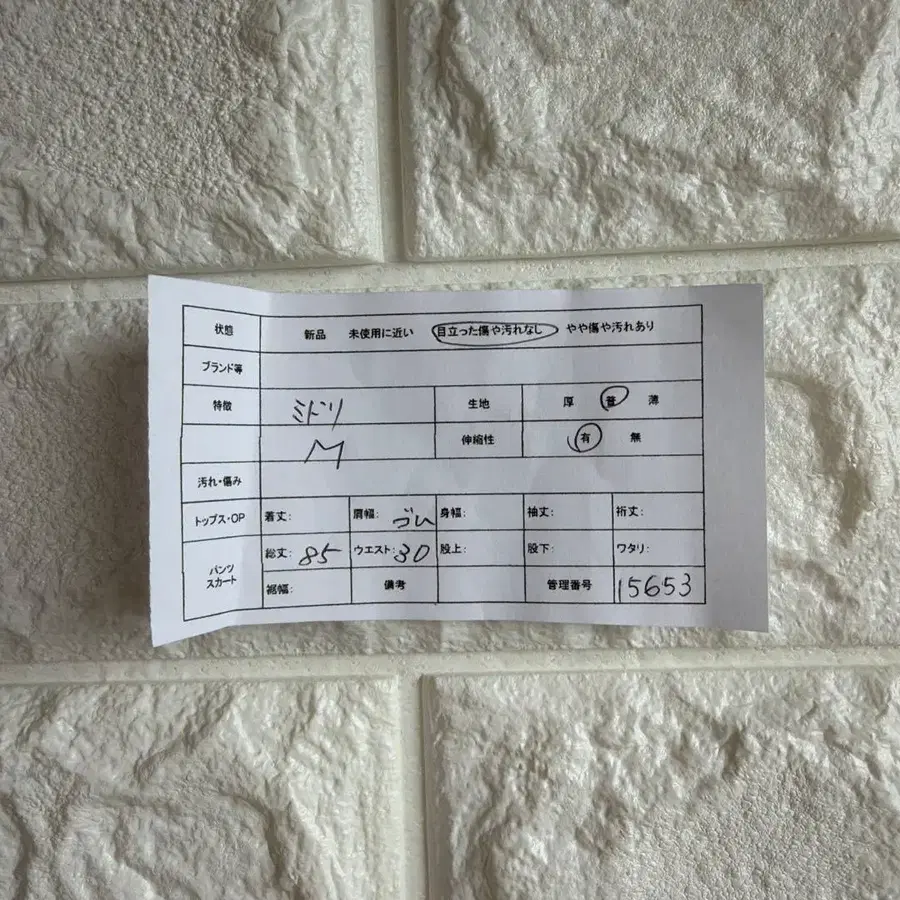 状態 新品 未使用に近い 目立った傷や汚れなし やや傷や汚れあり
ブランド等
特徴 ミドリ 生地 厚 普 薄
M 伸縮性 有 無
汚れ・傷み
トップス・OP 着丈: 肩幅: ゴム 身幅: 袖丈: 裄丈:
パンツ スカート 総丈: 85 ウエスト: 30 股上: 股下: ワタリ:
裾幅: 備考 管理番号 15653